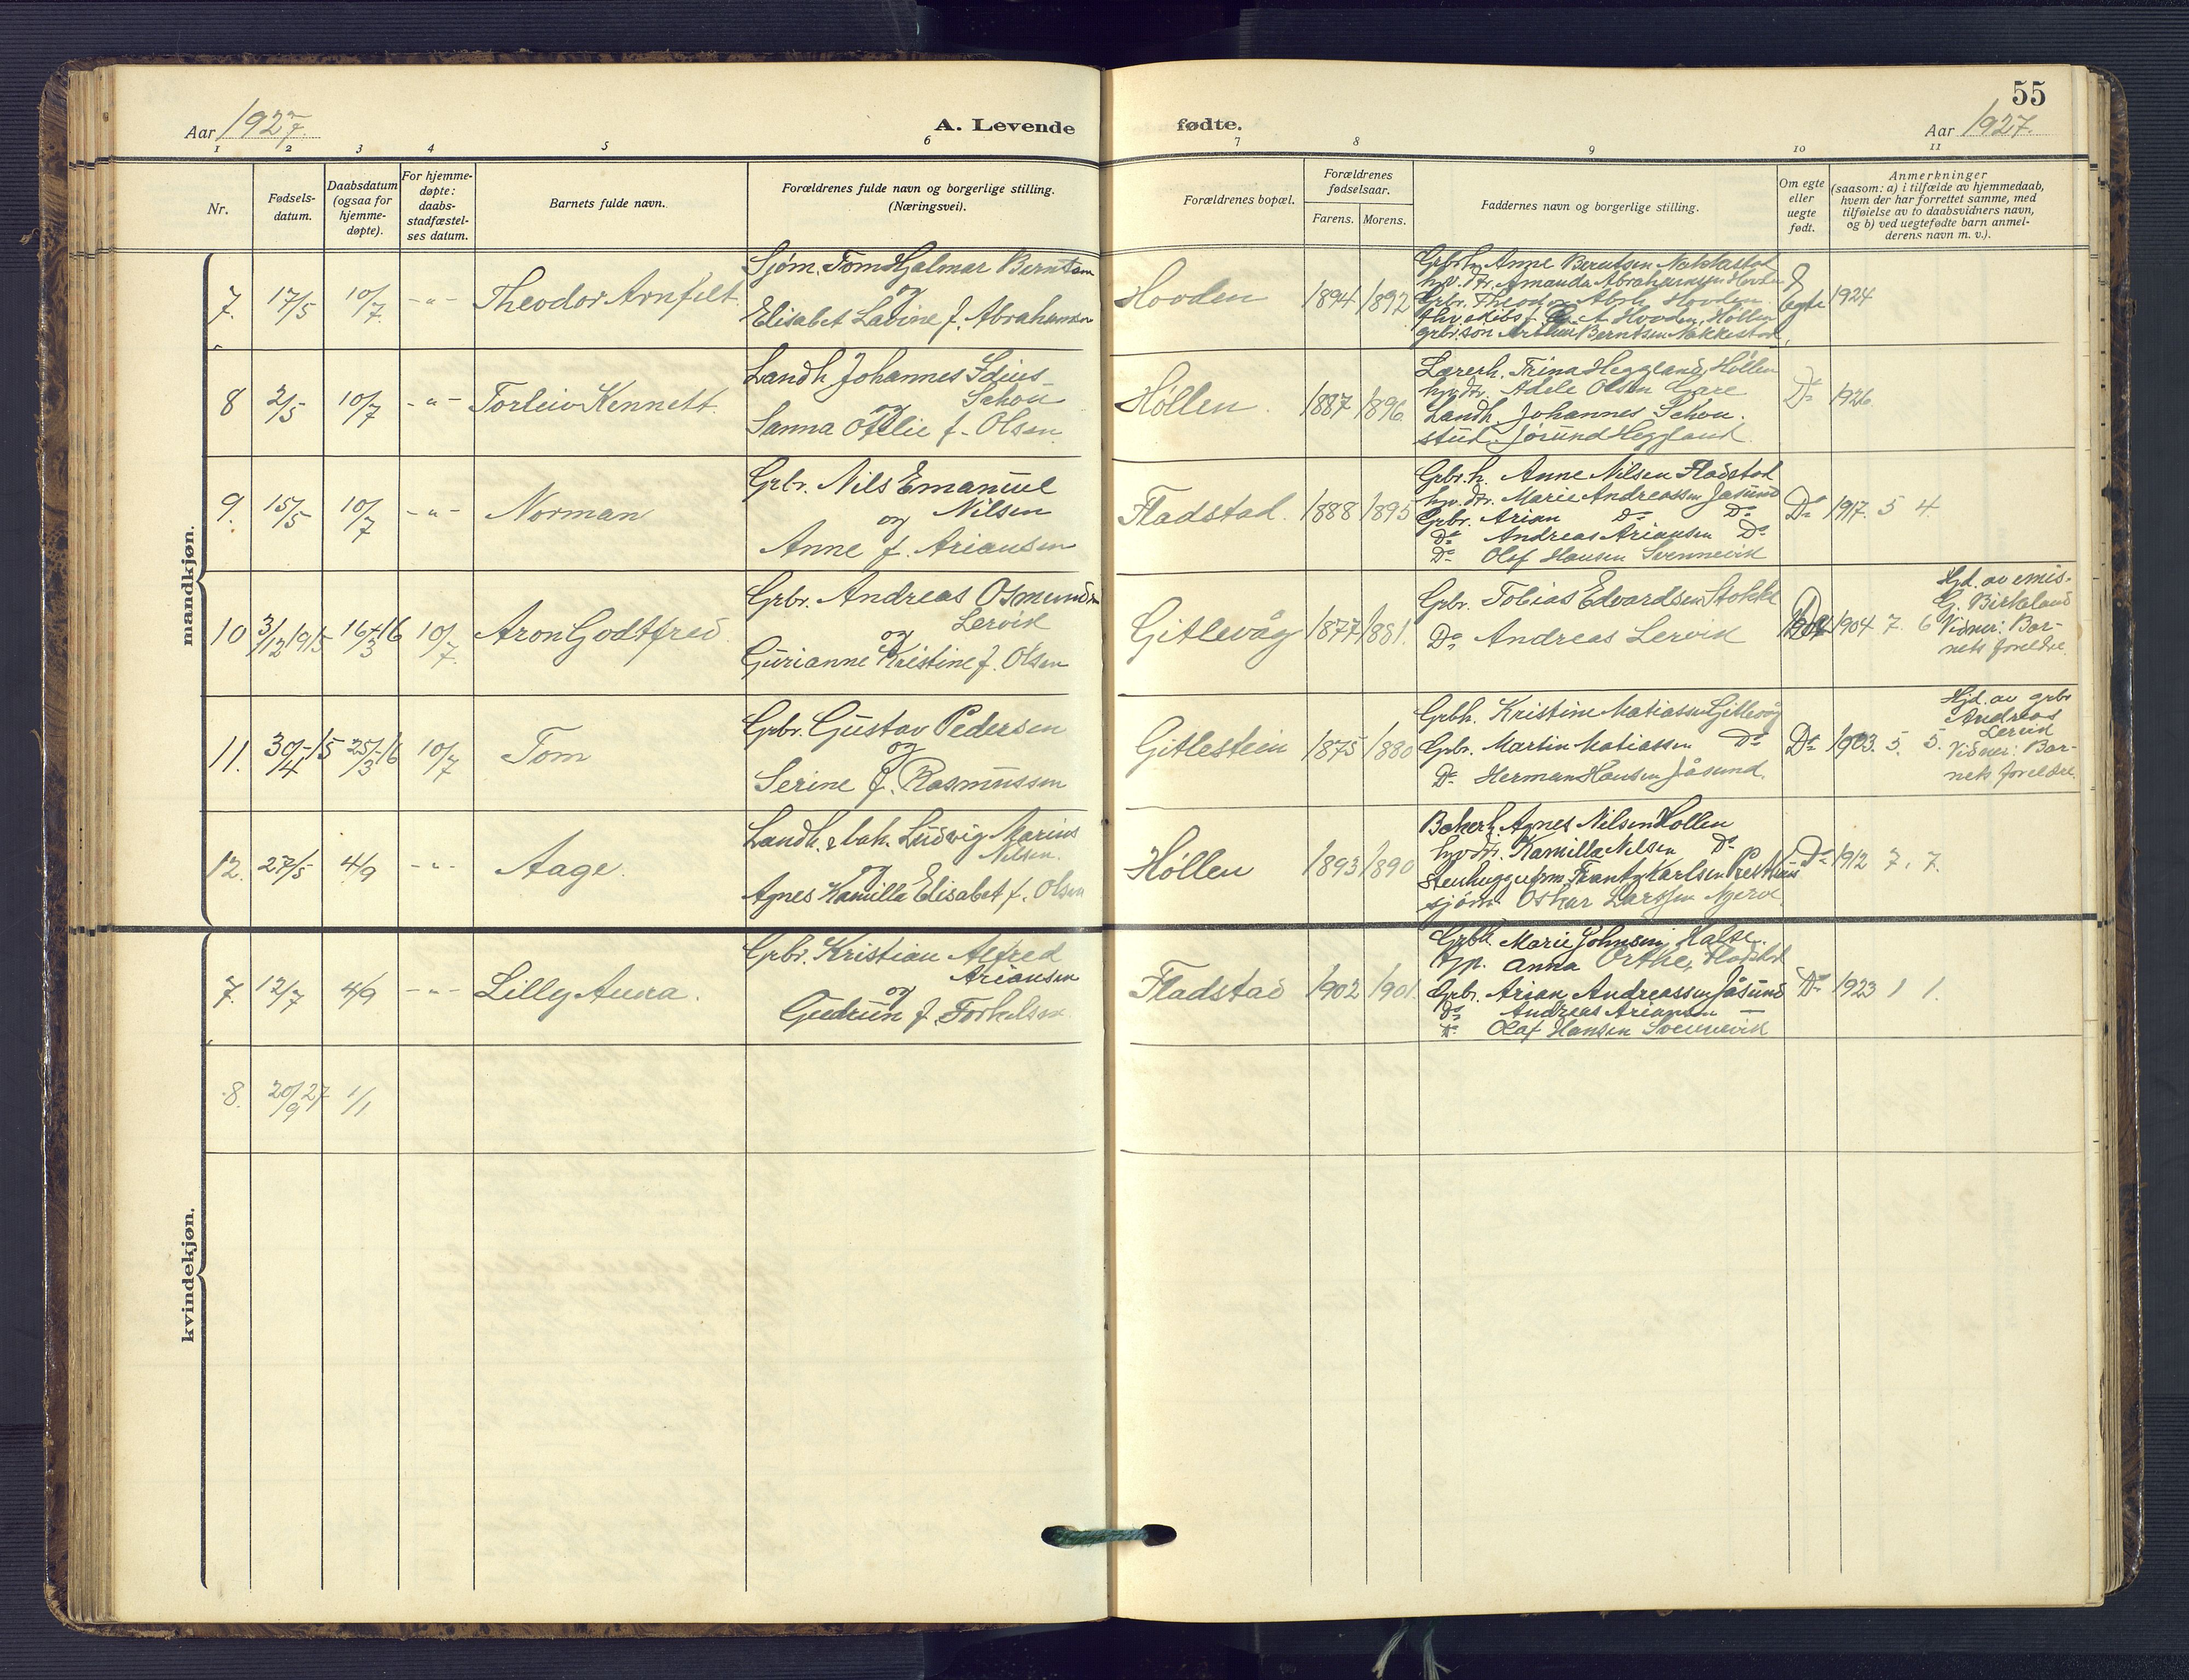 55
Aar 1927.
A. Levende
fødte.
Aar 1927.
1 2 3 4 5 6 7 8 9 10 11
Nr.
Fødsels-
datum.
Daabsdatum
(ogsaa for
hjemme-
døpte).
For hjemme-
døpte:
daabs-
stadfæstel-
ses datum.
Barnets fulde navn.
Forældrenes fulde navn og borgerlige stilling.
(Næringsvei).
Forældrenes bopæl.
Forældrenes
fødselsaar.
Farens. Morens.
Faddernes navn og borgerlige stilling.
Om egte
eller
uegte
født.
Anmerkninger
(saasom: a) i tilfælde av hjemmedaab,
hvem der har forrettet samme, med
tilføielse av to daabsvidners navn,
og b) ved uegtefødte barn anmel-
derens navn m. v.).
mandkjøn.
7. 17/5 10/7 -"- Theodor Arnfelt.
Sjøm. Tom Hjalmar Berntsen
og
Elisabet Lavine f. Abrahamsen
Hovden 1894 1892
Grbrh. Anne Berntsen Nakkestad
hv. dtr. Amanda Abrahamsen Hovden
Grbr. Theodor Abrh. Hovden
Hovden, Høllen
grbr.søn Arthur Berntsen Nakkestad,
egte 1924
8 2/5 10/7 -"- Torleiv Kennett.
Landh. Johannes Idius
Schou
og
Sanna Otelie f. Olsen
Høllen. 1887 1896
Lærerh. Trina Heggland, Høllen
hv. dtr. Adele Olsen Gare
Landh. Johannes Schou.
stud. Jørund Heggland.
Do 1926
9. 15/5 10/7 -"- Norman
Grbr. Nils Emanuel
Nilsen
og
Anne f. Ariansen
Fladstad. 1888 1895
Grbr.h. Anne Nilsen Fladstad
hv. dtr. Marie Andreassen Jåsund
Grbr. Arian Do Do
Do Andreas Ariansen Do
Do Olof Hansen Svennevik
Do 1917. 5 4.
10 3/12 1915 16/3 16 10/7. Aron Godtfred.
Grbr. Andreas Osmundsen
Lervik
og
Gurianne Kristine f. Olsen
Gitlevåg 1877 1881.
Grbr. Tobias Edvardsen Stokke
Do Andreas Lervik
1904 7. 6
Hjd. av emis.
G. Birkeland
Vidner: Bar-
nets foreldre.
11. 30/4-15 25/3-16 10/7 Tom
Grbr. Gustav Pedersen
og
Serine f. Rasmussen
Gitlestein 1875 1880
Grbh. Kristine Matiassen Gitlevåg
Grbr. Martin Matiassen Do
Do Herman Hansen Jåsund.
Do 1903. 5. 5.
Hjd. av grbr
Andreas
Lervik
Vidner: Bar-
nets foreldre.
12. 27/5 4/9 -"- Aage.
Landh. & bak. Ludvig Marius
Nilsen.
og
Agnes Kamilla Elisabet f. Olsen
Høllen 1893 1890
Bakerh. Agnes Nilsen Høllen
hv dtr. Kamilla Nilsen Do
Stenhuggerfm. Frantz Karlsen
sjøm. Oskar Larssen
Do 1912 7. 7.
kvindekjøn.
7. 12/7 4/9 -"- Lilly Anna.
Grbr. Kristian Alfred
Ariansen
og
Gudrun f. Torkelsen.
Fladstad 1902 1901.
Grbh. Marie Johnsen, Halse.
Anna Fladstad
Grbr. Arian Andreassen Jåsund
Do Andreas Ariansen —
Do Olaf Hansen Svennevik
Do 1923 1 1.
8. 20/9 27 1/1